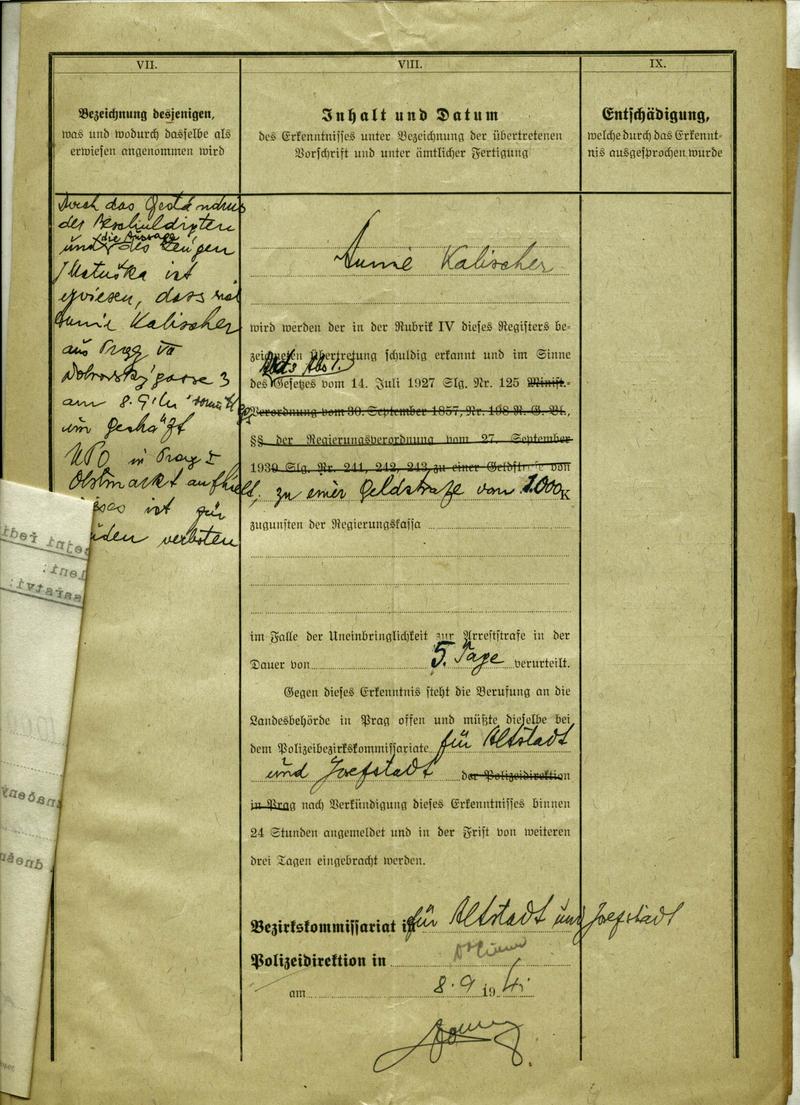 VII.
Bezeichnung desjenigen,
was und wodurch dasselbe als
erwiesen angenommen wird
Durch das Geständnis
des Beschuldigten
und die Aussage des Zeugen
Matuška ist
erwiesen, dass
Annie Kalischer
aus Prag
gasse 3
am 8.9.
im Geschäft
in Prag I
Obstmarkt aufhielt,
ist für
Juden verboten
VIII.
Inhalt und Datum
des Erkenntnisses unter Bezeichnung der übertretenen
Vorschrift und unter ämtlicher Fertigung
Annie Kalischer
wird werden der in der Rubrik IV dieses Registers be-
zeichneten Übertretung schuldig erkannt und im Sinne
des Gesetzes vom 14. Juli 1927 Slg. Nr. 125 Minist.-
Verordnung vom 30. September 1857, Nr. 198 R. G. Bl.,
§§ der Regierungsverordnung vom 27. September
1939 Slg. Nr. 241, 242, 243 zu einer Geldstrafe von
zu einer Geldstrafe von 1.000 K
zugunsten der Regierungskassa
im Falle der Uneinbringlichkeit zur Arreststrafe in der
Dauer von 5. Tage verurteilt.
Gegen dieses Erkenntnis steht die Berufung an die
Landesbehörde in Prag offen und müßte dieselbe bei
dem Polizeibezirkskommissariate für Altstadt
und Josefstadt der Polizeidirektion
in Prag nach Verkündigung dieses Erkenntnisses binnen
24 Stunden angemeldet und in der Frist von weiteren
drei Tagen eingebracht werden.
Bezirkskommissariat in für Altstadt und Josefstadt
Polizeidirektion in
am 8.9 1941
IX.
Entschädigung,
welche durch das Erkennt-
nis ausgesprochen wurde